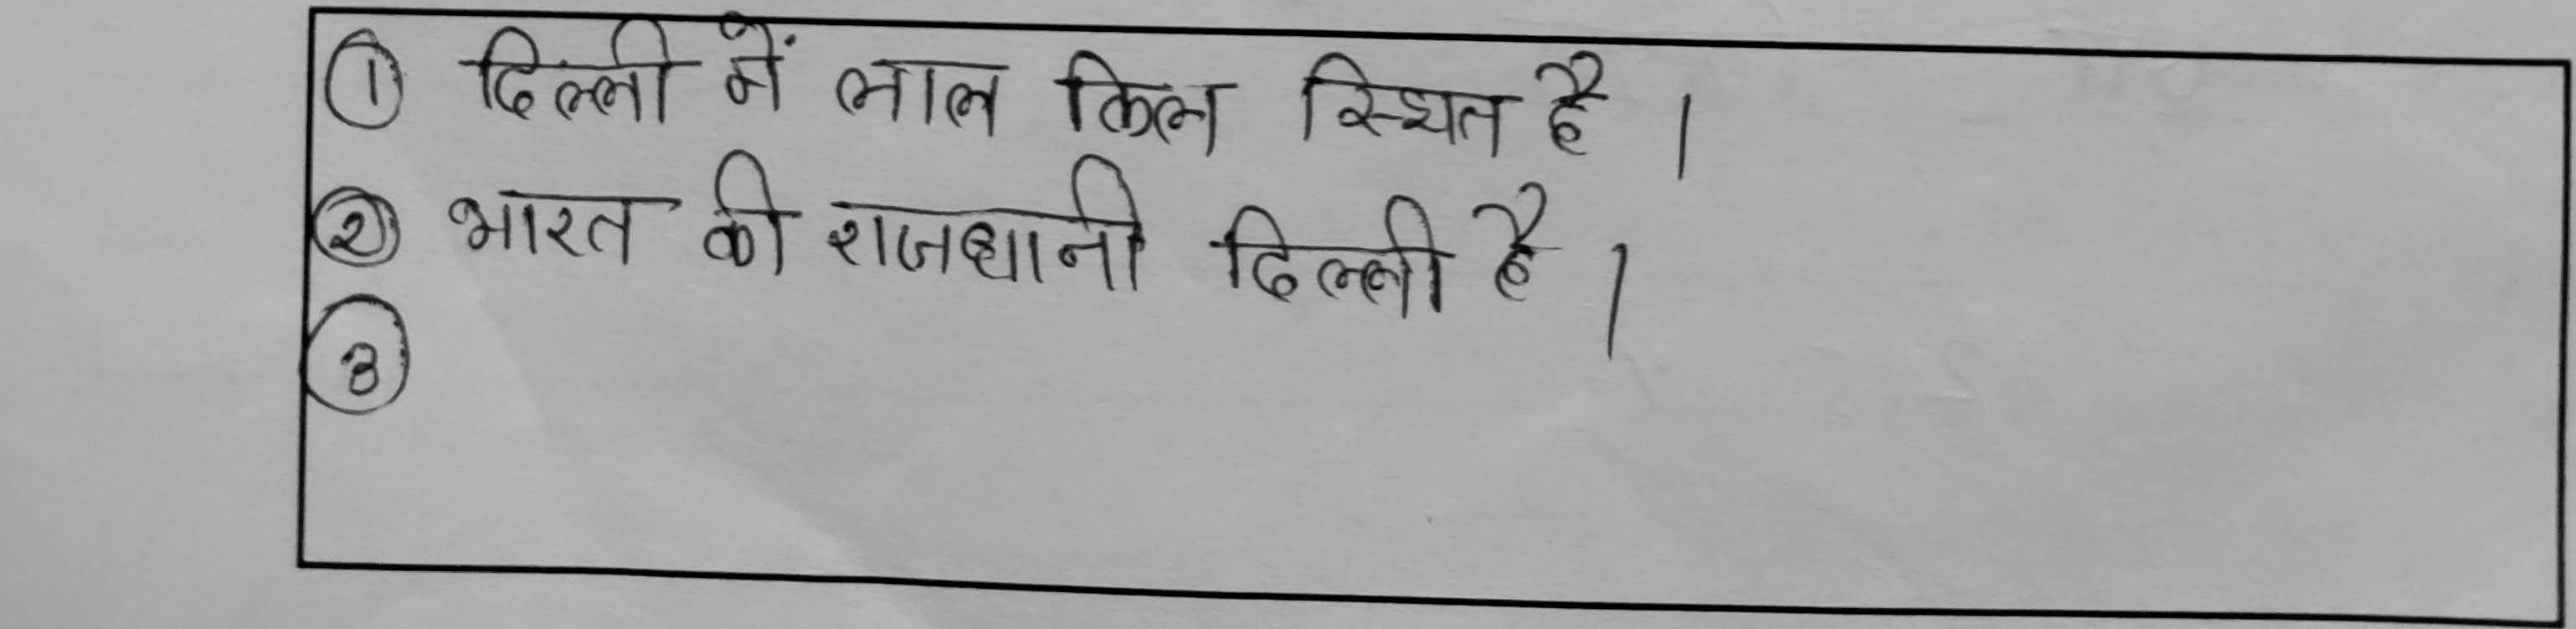 ① दिल्ली में लाल किल स्थित है ।
② भारत की राजधानी दिल्ली है ।
③